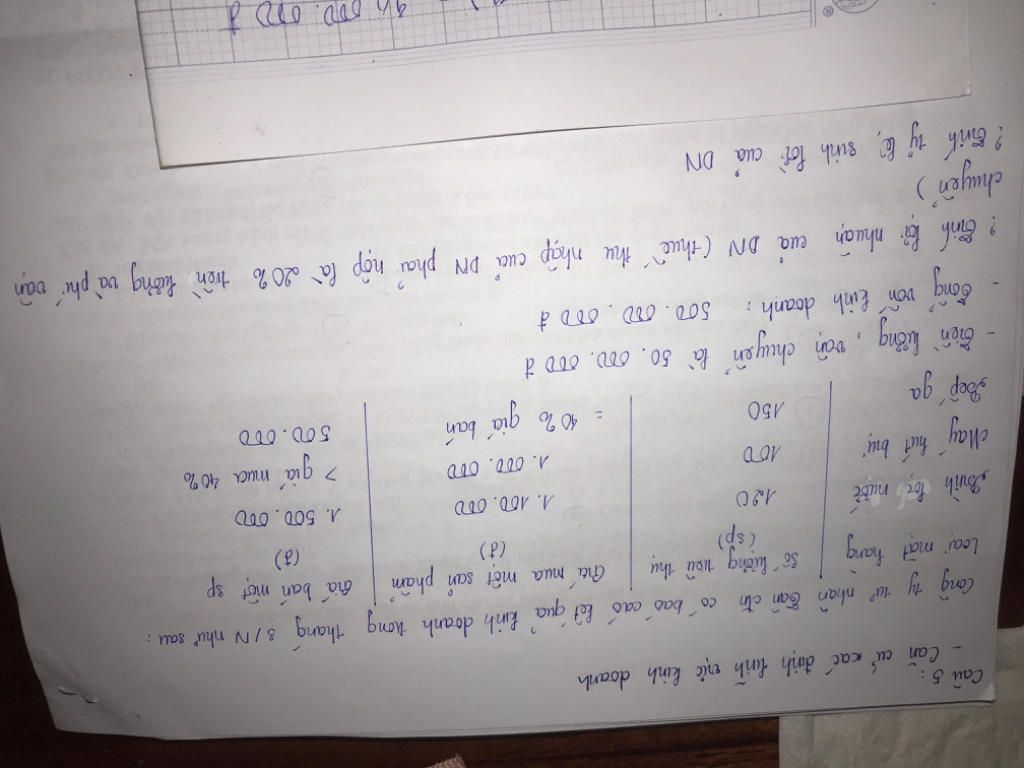 Câu 5: - Căn cứ xác định lĩnh vực kinh doanh
Công ty tư nhân có báo cáo kết quả kinh doanh trong tháng 3/N như sau:
Loại mặt hàng Số lượng tiêu thụ (sp) Giá mua một sản phẩm (đ) Giá bán một sp (đ)
Bình lọc nước 120 1. 100. 000 1. 500. 000
Máy hút bụi 100 1. 000. 000 > giá mua 40%
Bếp ga 150 = giá bán 500. 000
- Tiền lương, vận chuyển là 50. 000. 000 đ
- Tổng vốn kinh doanh: 500. 000. 000 đ
? Tính lợi nhuận của DN (thuế thu nhập của DN phải nộp là 20% tiền lương và phí vận
chuyển)
? Tính tỷ lệ sinh lời của DN
000. 000 đ